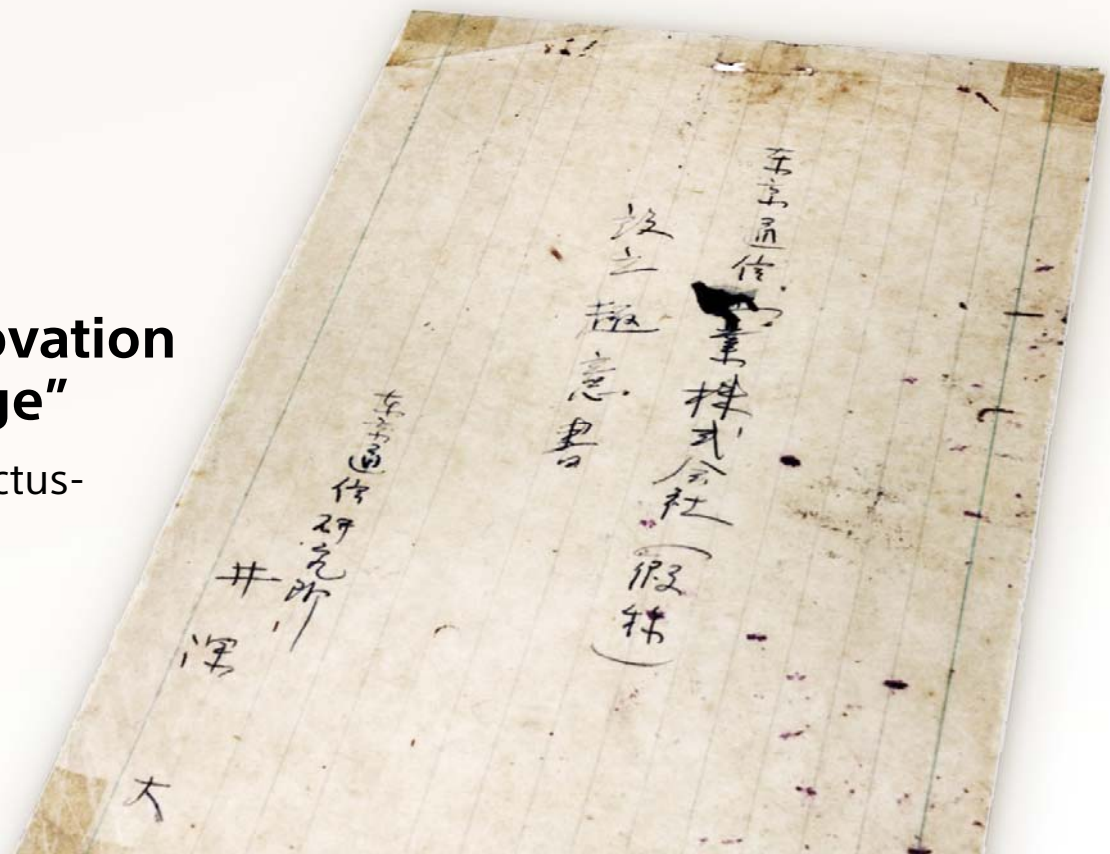 ovation
ge”
ctus-
東京通信 業株式会社(假称)
設立趣意書
東京通信研究所
井深大